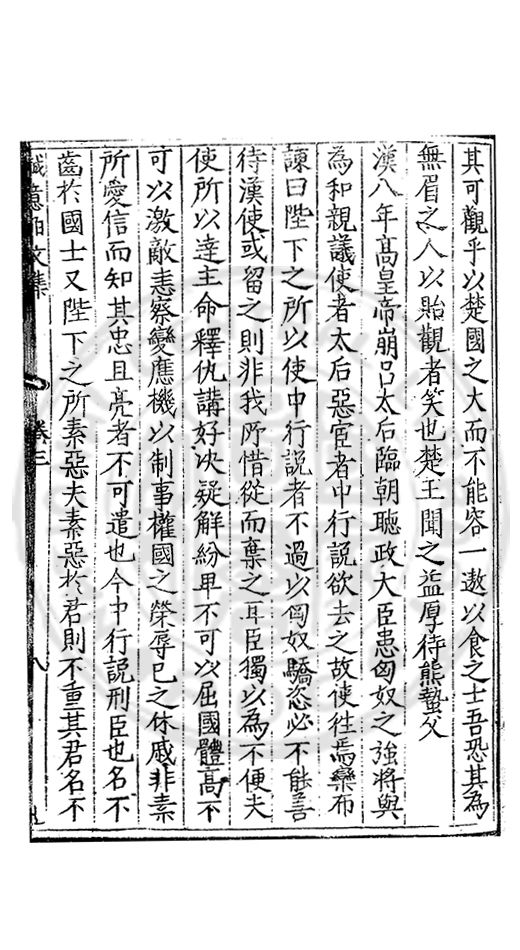 其可觀乎以楚國之大而不能容一遨以食之士吾恐其為
無眉之人以貽觀者笑也楚王聞之益厚待熊蟄父
漢八年髙皇帝崩呂太后臨朝聽政大臣患匈奴之強將與
為和親議使者太后惡宦者中行説欲去之故使徃焉欒布
諫曰陛下之所以使中行説者不過以匈奴驕恣必不能善
待漢使或留之則非我所惜從而棄之耳臣獨以為不便夫
使所以逹主命釋仇講好决疑解紛卑不可以屈國體高不
可以激敵恚察變應機以制事權國之榮辱巳之休戚非素
所愛信而知其忠且亮者不可遣也今中行説刑臣也名不
齒於國士又陛下之所素惡夫素惡於君則不重其君名不
誠意伯文集
卷三
八